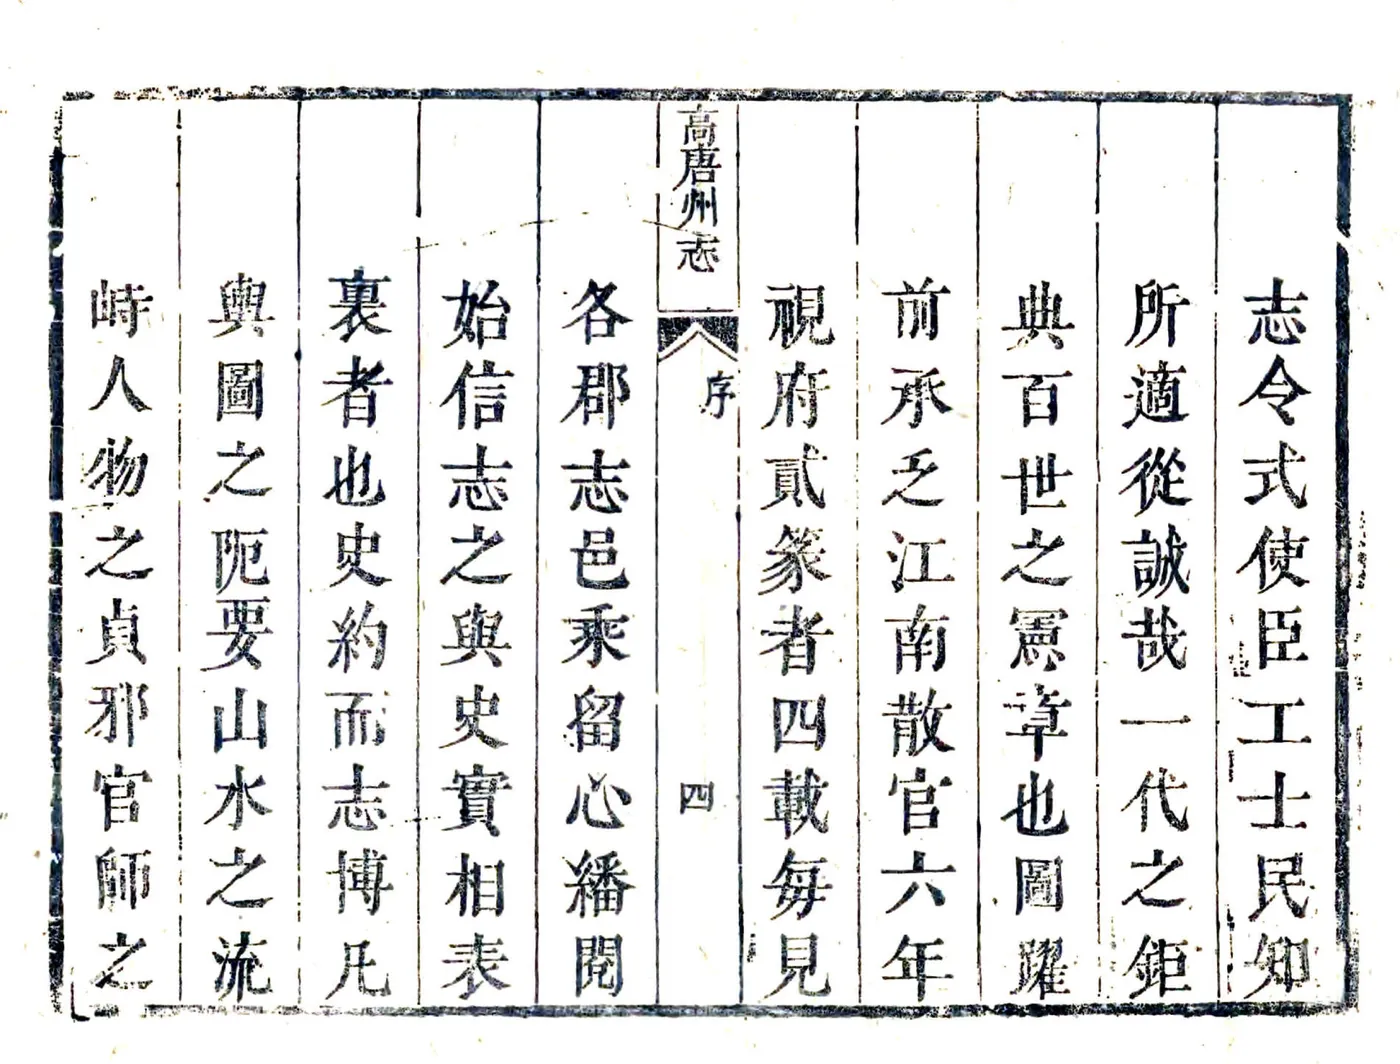 志令式使臣工士民知
所適從誠哉一代之鉅
典百世之憲章也圖躍
前承乏江南散官六年
視府貳篆者四載每見
高唐州志
序
四
各郡志邑乘留心繙閱
始信志之與史實相表
裏者也史約而志博凡
輿圖之阨要山水之流
峙人物之貞邪官師之